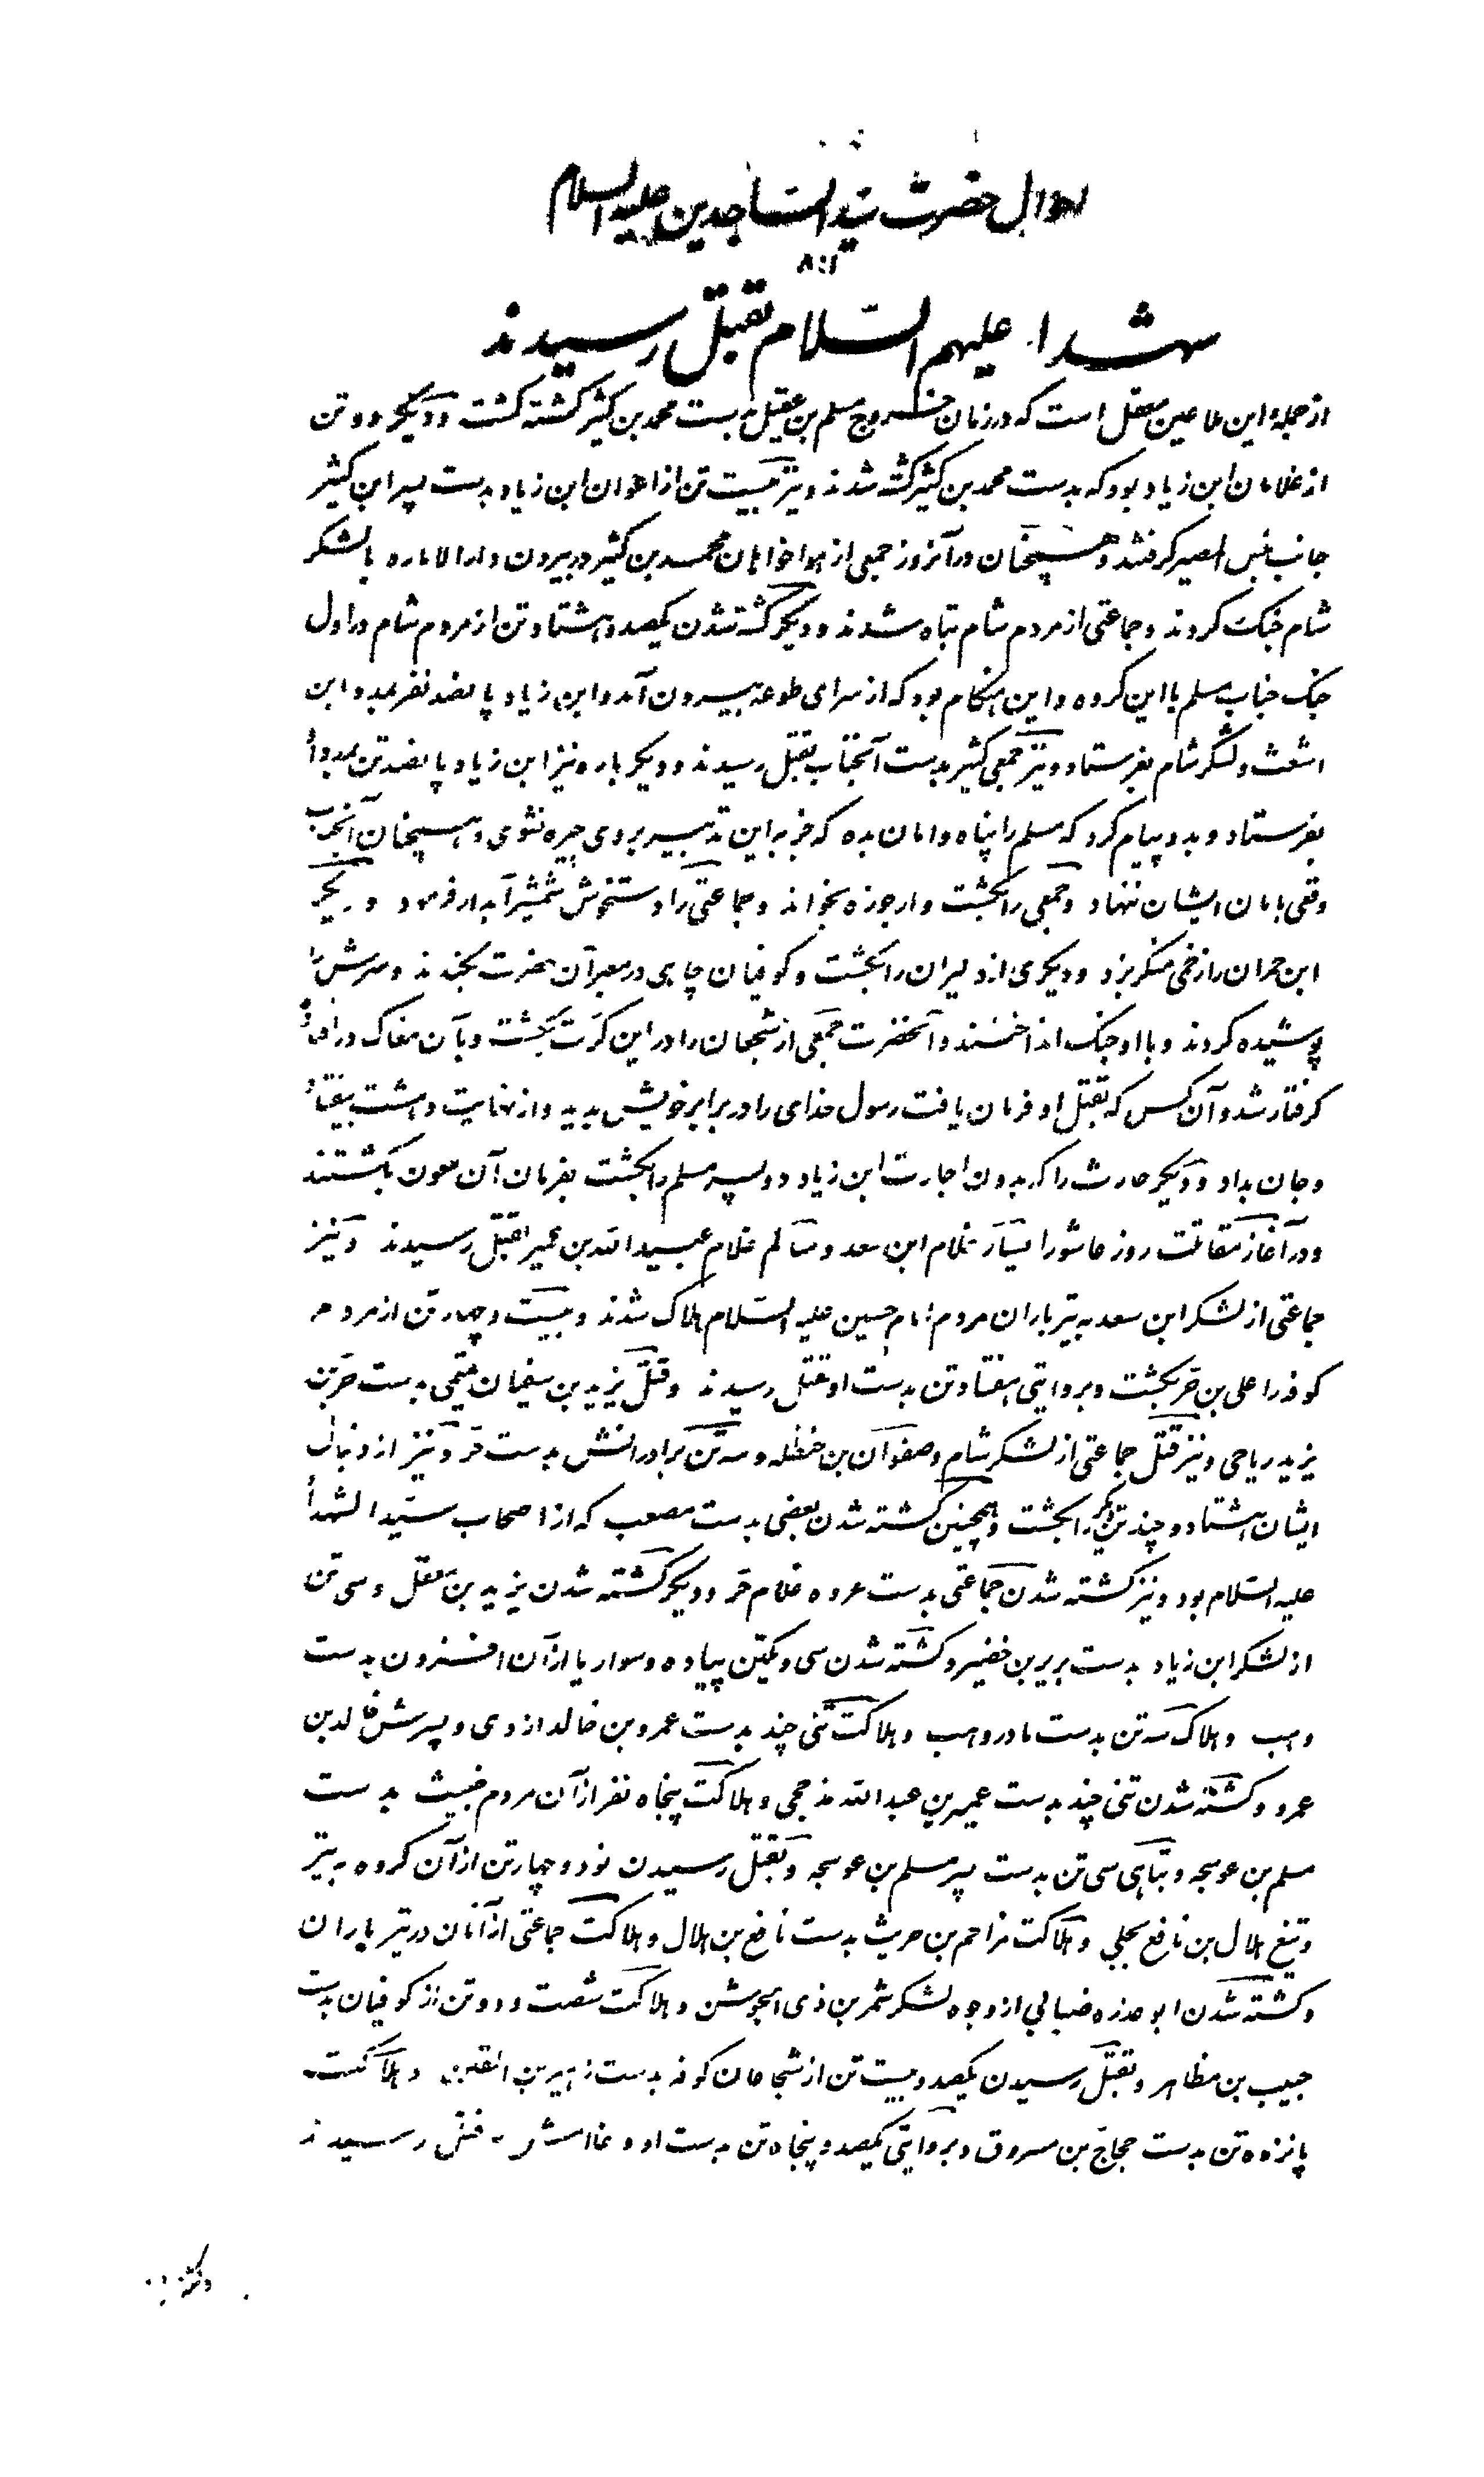 احوال حضرت سید الساجدین علیه السلام
۸۰۱
شهداء علیهم السّلام بقتل رسیدند
از جمله این ملاعین معقل است که در زمان خروج مسلم بن عقیل بدست محمد بن کثیر کشته کشت و دیکر دو تن
از غلامان ابن زیاد بود که بدست محمد بن کثیر کشته شدند و نیز بیست تن از اعوان ابن زیاد بدست پسر ابن کثیر
جانب بئس المصیر کرفتند و همچنان در آنروز جمعی از هواخواهان محمد بن کثیر در بیرون دارالاماره با لشکر
شام جنک کردند و جماعتی از مردم شام تباه شدند و دیکر کشته شدن یکصد و هشتاد تن از مردم شام در اول
جنک جناب مسلم با این کروه و این هنکام بود که از سرای طوعه بیرون آمد و ابن زیاد پانصد نفر بمدد ابن
اشعث و لشکر شام بفرستاد و نیز جمعی کثیر بدست آنجناب بقتل رسیدند و دیکر باره نیز ابن زیاد پانصد تن بمدد او
بفرستاد و بدو پیام کرد که مسلم را پناه و امان بده که جز به این تدبیر بر وی چیره نشوی و همچنان آنجناب
وقعی بامان ایشان ننهاد و جمعی را بکشت و ارجوزه بخواند و جماعتی را دستخوش شمشیر آبدار فرمود و دیکر
ابن حمران را زخمی منکر بزد و دیکری از دلیران را بکشت و کوفیان چاهی در معبر آن حضرت بکندند و سرش را
پوشیده کردند و با او جنک انداختند و آنحضرت جمعی از شجعان را در این کرّت بکشت و بآن مغاک در افتاد
کرفتار شد و آن کس که بقتل او فرمان یافت رسول خدای را در برابر خویش بدید و از نهایت دهشت بیفتاد
و جان بداد و دیکر حارث را که بدون اجازت ابن زیاد دو پسر مسلم را بکشت بفرمان آن ملعون بکشتند
و در آغاز مقاتلت روز عاشورا یسار غلام ابن سعد و سالم غلام عبید الله بن عمیر بقتل رسیدند و نیز
جماعتی از لشکر ابن سعد به تیر باران مردم امام حسین علیه السّلام هلاک شدند و بیست و چهار تن از مردم
کوفه را علی بن حر بکشت و بروایتی هفتاد تن بدست او بقتل رسیدند و قتل یزید بن سفیان تمیمی بدست حرّ بن
یزید ریاحی و نیز قتل جماعتی از لشکر شام و صفوان بن حنظله و سه تن برادرانش بدست حر و نیز از دنبال
ایشان هشتاد و چند تن دیکر را بکشت و همچنین کشته شدن بعضی بدست مصعب که از اصحاب سیّد الشهدا
علیه السّلام بود و نیز کشته شدن جماعتی بدست عروه غلام حر و دیکر کشته شدن یزید بن معقل و سی تن
از لشکر ابن زیاد بدست بریر بن خضیر و کشته شدن سی و یکتن پیاده و سوار یا از آن افزون بدست
وهب و هلاک سه تن بدست مادر وهب و هلاکت تنی چند بدست عمرو بن خالد ازدی و پسرش خالد بن
عمرو و کشته شدن تنی چند بدست عمیر بن عبد الله مذحجی و هلاکت پنجاه نفر از آن مردم خبیث بدست
مسلم بن عوسجه و تباهی سی تن بدست پسر مسلم بن عوسجه و بقتل رسیدن نود و چهار تن از آن کروه به تیر
و تیغ هلال بن نافع بجلی و هلاکت مزاحم بن حریث بدست نافع بن هلال و هلاکت جماعتی از آنان در تیر باران
و کشته شدن ابو عذره ضبابی از وجوه لشکر شمر بن ذی الجوشن و هلاکت شصت و دو تن از کوفیان بدست
حبیب بن مظاهر و بقتل رسیدن یکصد و بیست تن از شجاعان کوفه بدست زهیر بن القین و هلاکت
پانزده تن بدست حجاج بن مسروق و بروایتی یکصد و پنجاه تن بدست او و غلامش بقتل رسیدند